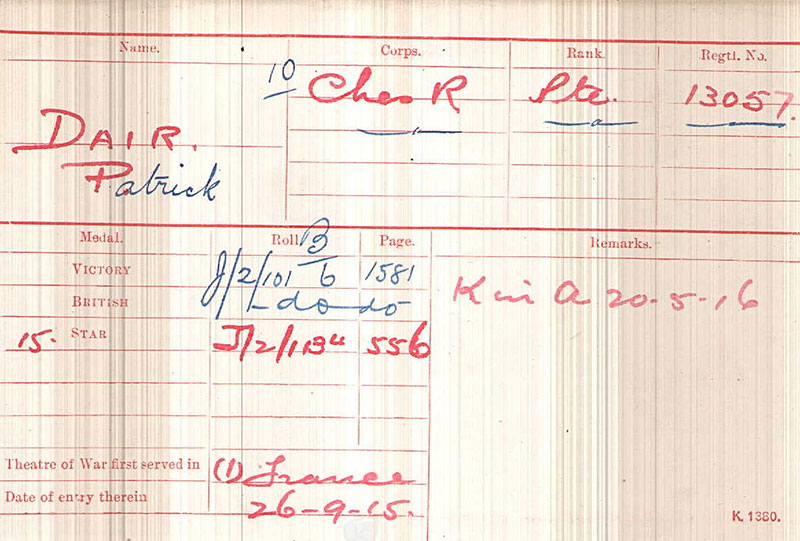 Name. Corps. Rank. Regtl. No.
10 Ches R Pte. 13057.
DAIR.
Patrick
Medal. Roll. Page. Remarks.
B
VICTORY J/2/101 6 1581
BRITISH -do- do K in A 20-5-16
15. STAR J/2/ 556
Theatre of War first served in (1) France
Date of entry therein 26-9-15.
K. 1380.